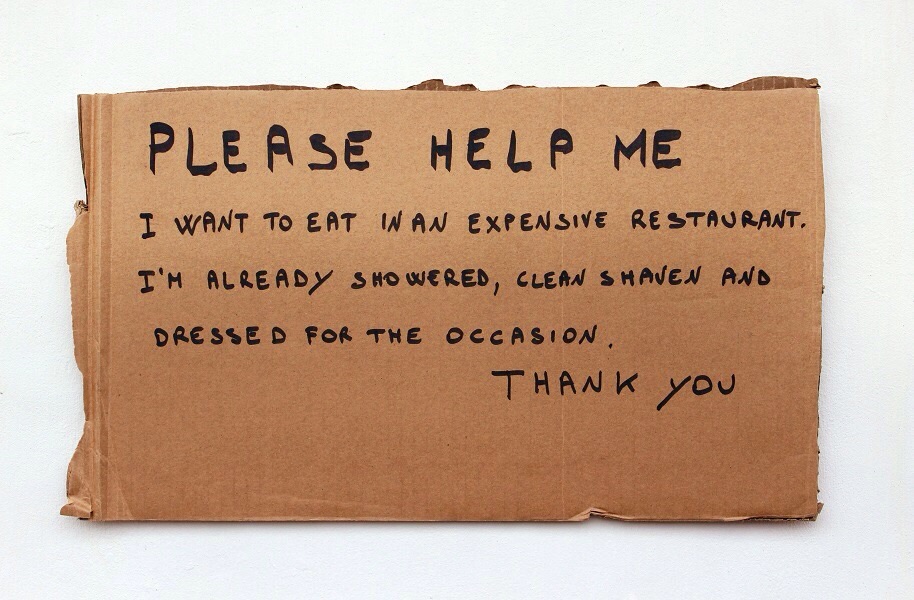 PLEASE HELP ME
I WANT TO EAT IN AN EXPENSIVE RESTAURANT.
I'M ALREADY SHOWERED, CLEAN SHAVEN AND
DRESSED FOR THE OCCASION.
THANK YOU